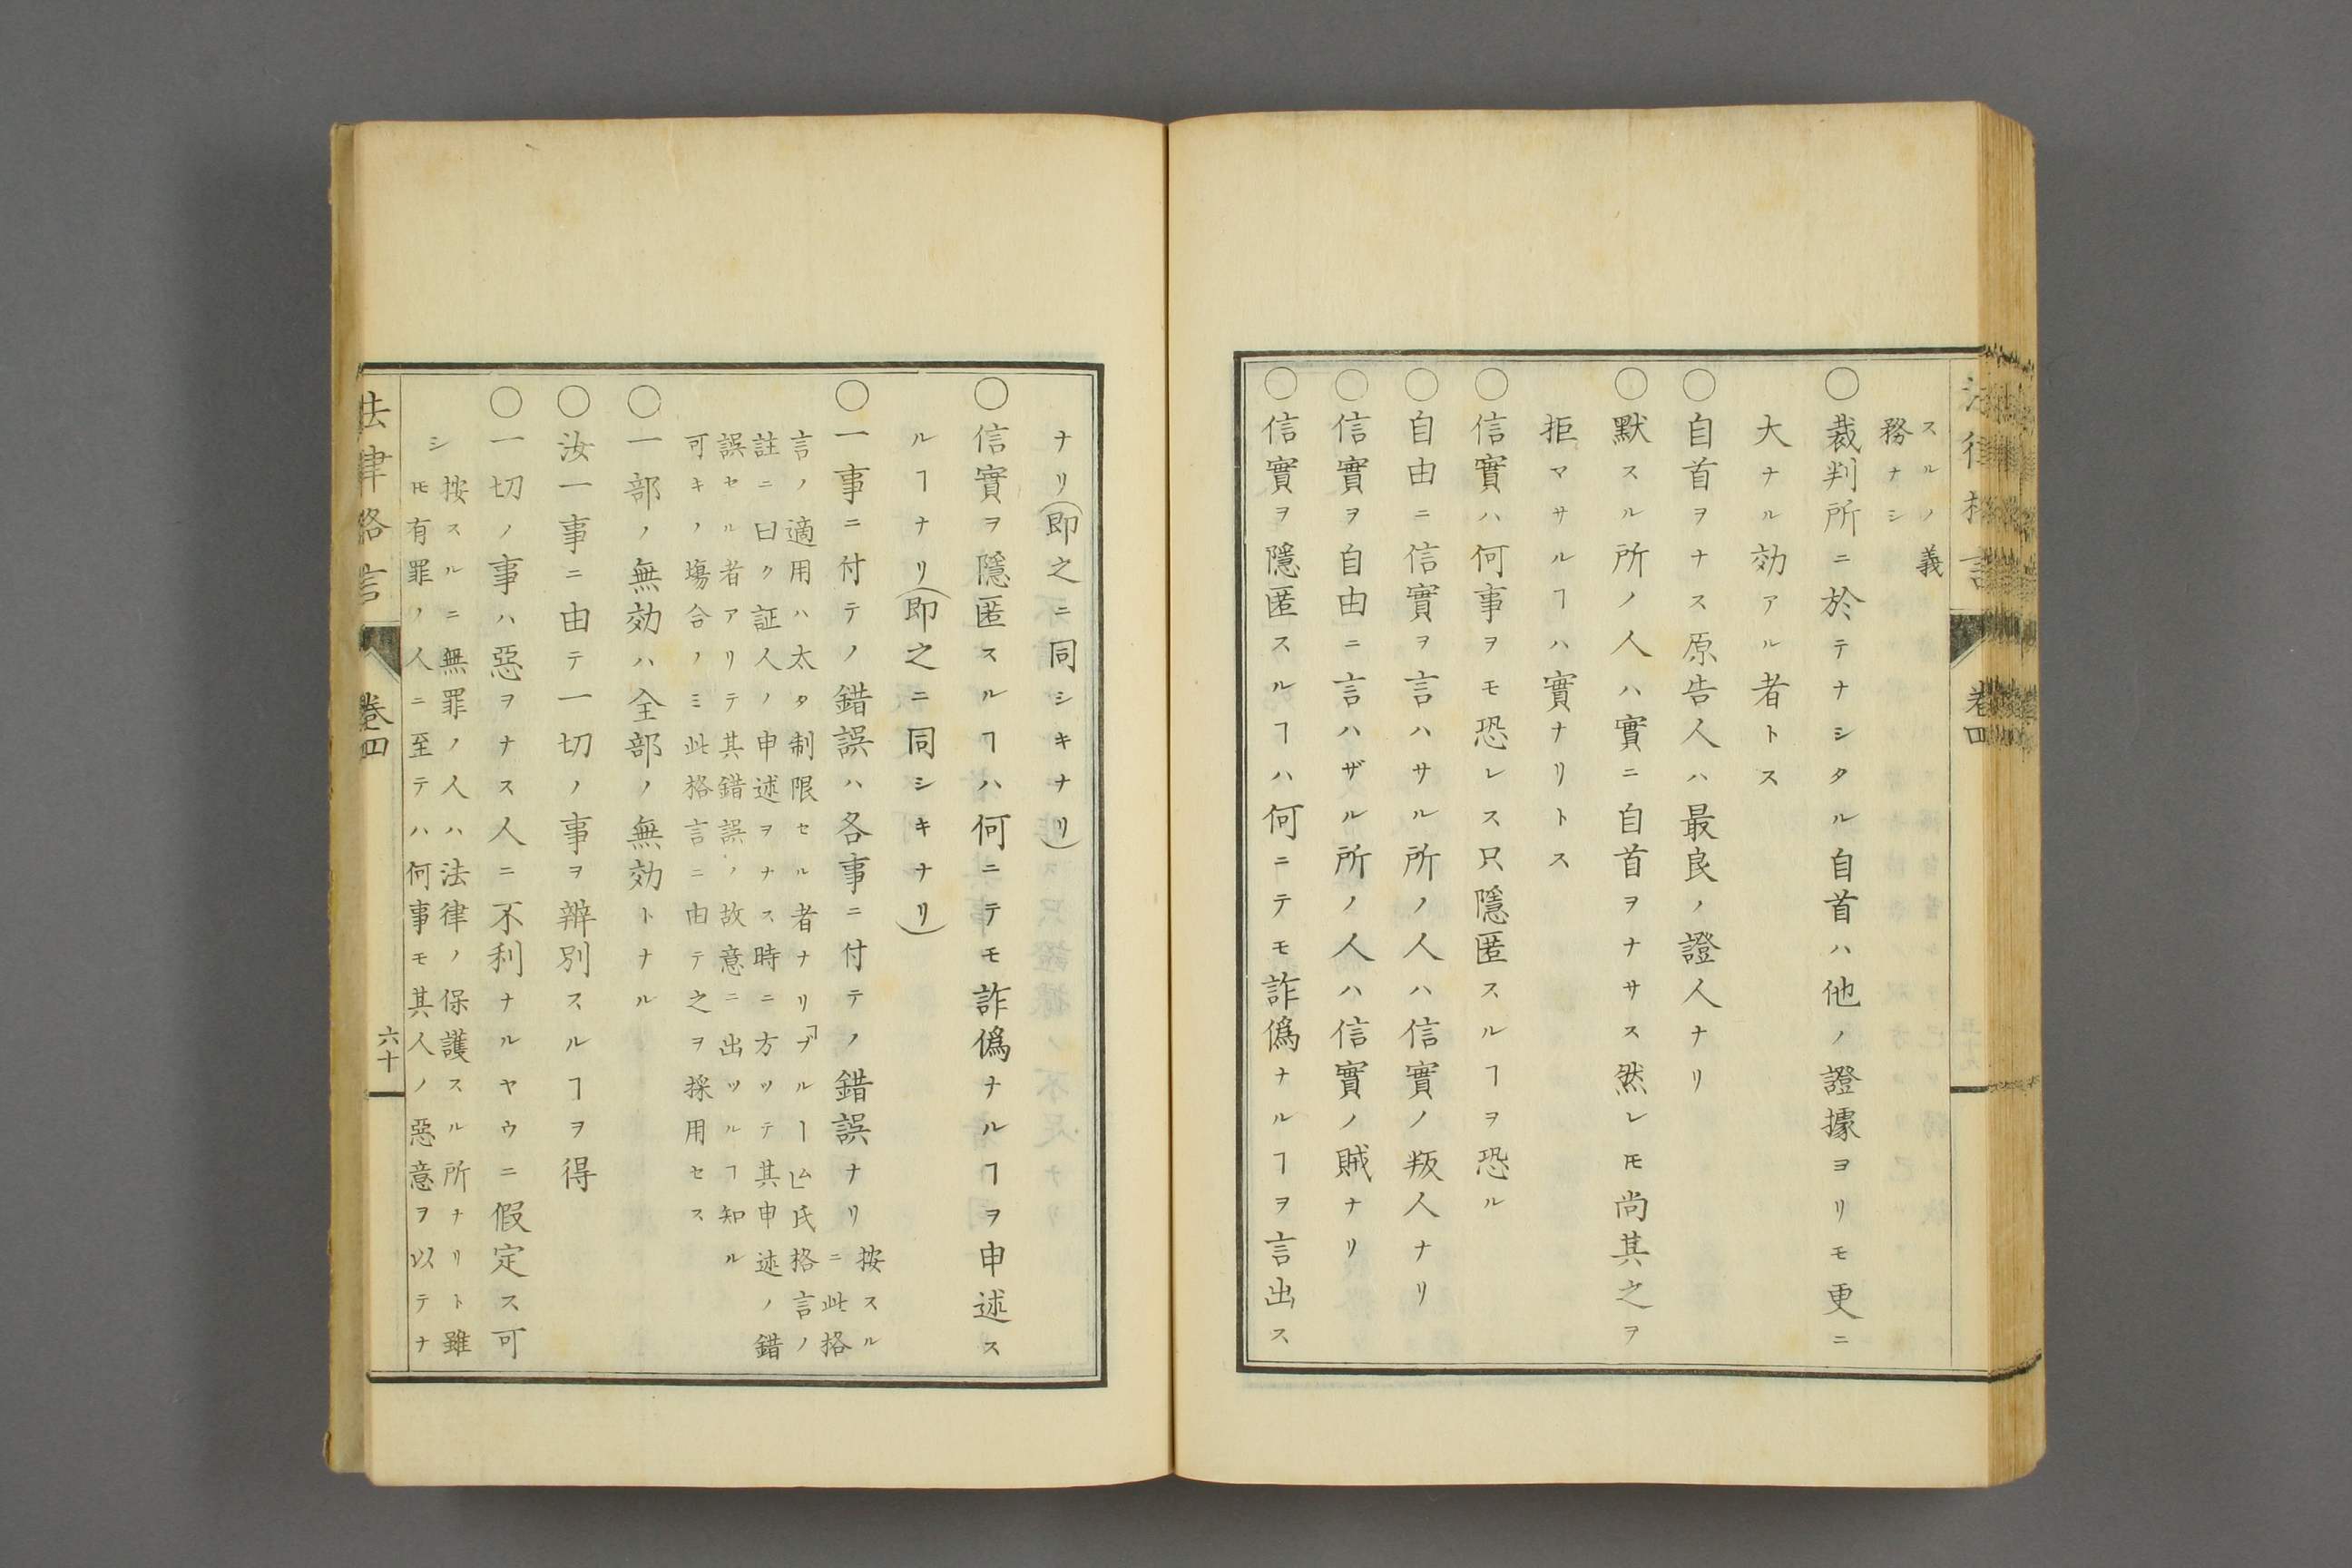 スルノ義
務ナシ
○裁判所ニ於テナシタル自首ハ他ノ證據ヨリモ更ニ
大ナル効アル者トス
○自首ヲナス原告人ハ最良ノ證人ナリ
○默スル所ノ人ハ實ニ自首ヲナサス然レ𪜈尚其之ヲ
拒マサルヿハ實ナリトス
○信實ハ何事ヲモ恐レス只隱匿スルヿヲ恐ル
○自由ニ信實ヲ言ハサル所ノ人ハ信實ノ叛人ナリ
○信實ヲ自由ニ言ハザル所ノ人ハ信實ノ賊ナリ
○信實ヲ隱匿スルヿハ何ニテモ詐僞ナルヿヲ言出ス
ナリ(即之ニ同シキナリ)
○信實ヲ隱匿スルヿハ何ニテモ詐僞ナルヿヲ申述ス
ルヿナリ(即之ニ同シキナリ)
○一事ニ付テノ錯誤ハ各事ニ付テノ錯誤ナリ
按スル
ニ此格
言ノ適用ハ太タ制限セル者ナリ「ブルーム」氏格言ノ
註ニ曰ク証人ノ申述ヲナス時ニ方ツテ其申述ノ錯
誤セル者アリテ其錯誤ノ故意ニ出ツルヿ知ル
可キノ塲合ノミ此格言ニ由テ之ヲ採用セス
○一部ノ無効ハ全部ノ無効トナル
○汝一事ニ由テ一切ノ事ヲ辨別スルヿヲ得
○一切ノ事ハ惡ヲナス人ニ不利ナルヤウニ假定ス可
シ
按スルニ無罪ノ人ハ法律ノ保護スル所ナリト雖
𪜈有罪ノ人ニ至テハ何事モ其人ノ惡意ヲ以テナ
法律格言
卷四
六十